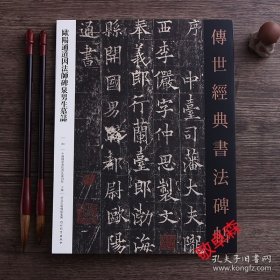 傳世經典書法碑帖
序中臺司藩大夫隴
西李儼字仲思製文
奉義郎行蘭臺郎渤海
縣開國男騎都尉歐陽
通書
歐陽通道因法師碑泉男生墓誌
孔夫子旧书网